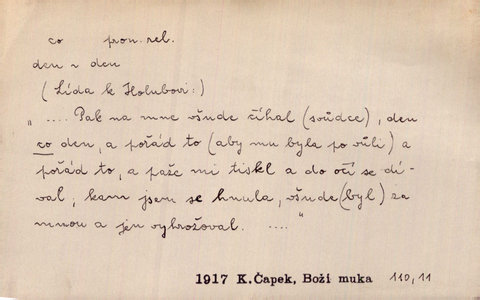 co pron. rel.
den z den
(Lída k Holubovi:)
„ .... Pak na mne všude číhal (soudce), den
co den, a pořád to (aby mu byla po vůli) a
pořád to, a paže mi tiskl a do očí se dí-
val; kam jsem se hnula, všude (byl) za
mnou a jen vyhrožoval. .... "
1917 K.Čapek, Boží muka 110,11